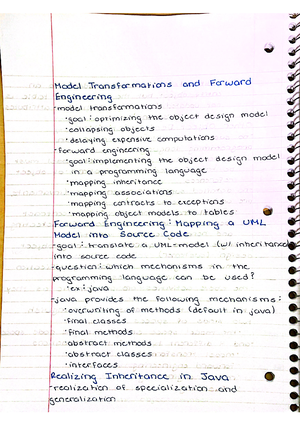 Model Transformations and Forward
Engineering
-model transformations
•goal: optimizing the object design model
•collapsing objects
•delaying expensive computations
-forward engineering
•goal: implementing the object design model
in a programming language
•mapping inheritance
•mapping associations
•mapping contracts to exceptions
•mapping object models to tables
Forward Engineering: Mapping a UML
Model into Source Code
-goal: translate a UML-model (w/ inheritance)
into source code
-question: which mechanisms in the
programming language can be used?
•ex: java
-java provides the following mechanisms:
•overwriting of methods (default in java)
•final classes
•final methods
•abstract methods
•abstract classes
•interfaces
Realizing Inheritance in Java
-realization of specialization and
generalization